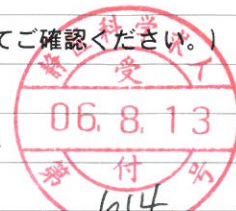 てご確認ください。)
受
06. 8. 13
第 付 号
614